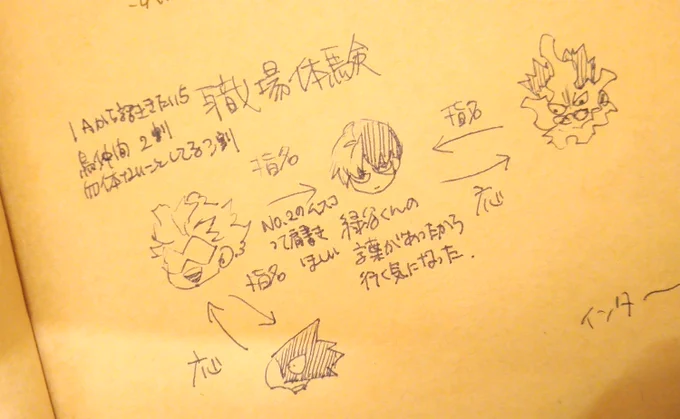 職場体験
1Aから話ききたい 5
鳥仲間 2割
勿体ないことしてる 3割
指名
指名
No.2のムスコ
って肩書き
ほしい
緑谷くんの
言葉があったから
行く気になった.
応
指名
応
インター